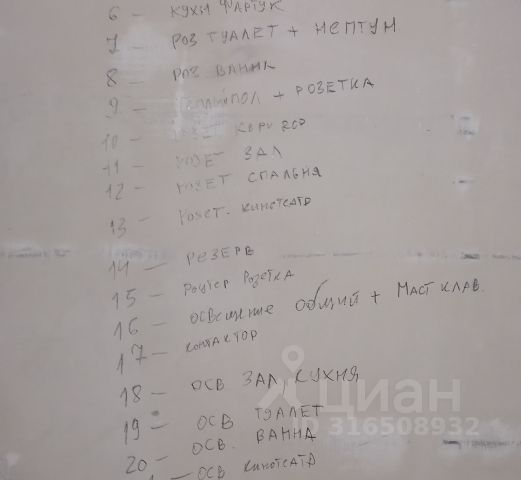 6 - КУХН ФАРТУК
7 - РОЗ ТУАЛЕТ + НЕПТУН
8 - РОЗ ВАННА
9 - ТЕПЛЫЙ ПОЛ + РОЗЕТКА
10 - РОЗЕТ КОРИДОР
11 - РОЗЕТ ЗАЛ
12 - РОЗЕТ СПАЛЬНЯ
13 - Розет. кинотеатр
14 - РЕЗЕРВ
15 - Роутер Розетка
16 - освещение общий + МАСТ КЛАВ.
17 - контактор
18 - ОСВ ЗАЛ, КУХНЯ
19 - ОСВ ТУАЛЕТ
20 - ОСВ. ВАННА
- ОСВ кинотеатр
циан
ID 316508932